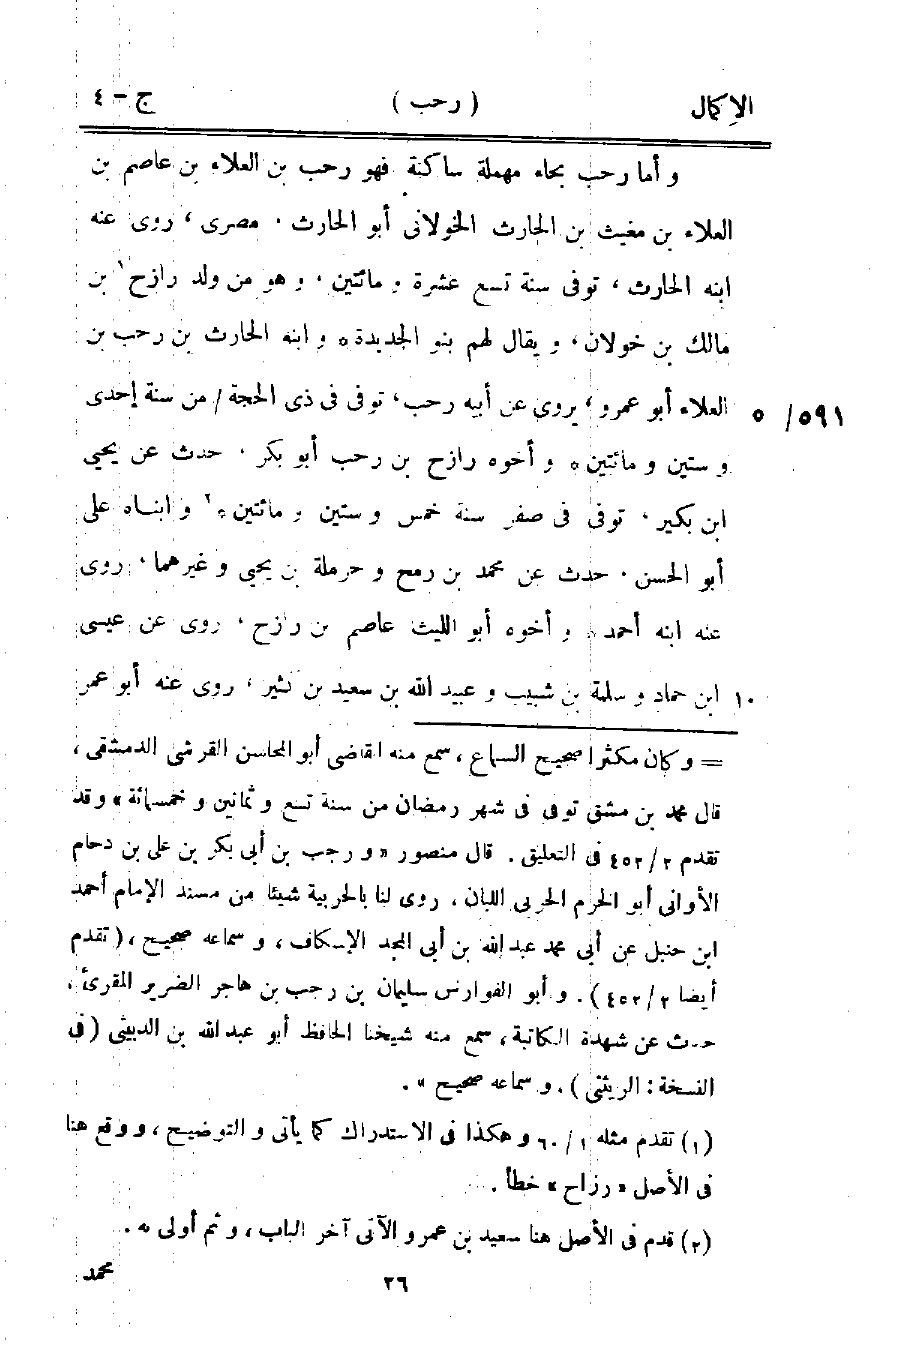 الإكمال ( رحب ) ج - ٤
و أما رحب بحاء مهملة ساكنة فهو رحب بن العلاء بن عاصم بن
العلاء بن مغيث بن الحارث الخولانى أبو الحارث ، مصرى ، روى عنه
ابنه الحارث ، توفى سنة تسع عشرة و مائتين ، و هو من ولد رازح ١ بن
مالك بن خولان ، و يقال لهم بنو الجديدة ٥ و ابنه الحارث بن رحب بن
٥٩١/ ٥ العلاء أبو عمرو ، يروى عن أبيه رحب ، توفى فى ذى الحجة / من سنة إحدى
و ستين و مائتين ٥ و أخوه رازح بن رحب أبو بكر ، حدث عن يحيى
ابن بكير ، توفى فى صفر سنة خمس و ستين و مائتين ٥ ٢ و ابناه على
أبو الحسن ، حدث عن محمد بن رمح و حرملة بن يحيى و غيرهما ، روى
عنه ابنه أحمد ٥ و أخوه أبو الليث عاصم بن رازح ، روى عن عيسى
١٠ ابن حماد و سلمة بن شبيب و عبيد الله بن سعيد بن كثير ، روى عنه أبو عمر
= و كان مكثرا صحيح السماع ، سمع منه القاضى أبو المحاسن القرشى الدمشقى ،
قال محمد بن مشق توفى فى شهر رمضان من سنة تسع و ثمانين و خمسمائة » و قد
تقدم ٢ / ٤٥٢ فى التعليق . قال منصور « و رجب بن أبى بكر بن على بن دحام
الأوانى أبو الخرم الحربى اللبان ، روى لنا بالحربية شيئا من مسند الإمام أحمد
ابن حنبل عن أبى محمد عبد الله بن أبى المجد الإسكاف ، و سماعه صحيح ، ( تقدم
أيضا ٢ / ٤٥٢ ) . و أبو الفوارس سليمان بن رجب بن هاجر الضرير المقرئ ،
حدث عن شهدة الكاتبة ، سمع منه شيخنا الحافظ أبو عبد الله بن الدبيثى ( فى
النسخة : الريثى ) . و سماعه صحيح » .
(١) تقدم مثله ١ / ٦٠ و هكذا فى الاستدراك كما يأتى و التوضيح ، و وقع هنا
فى الأصل « رزاح » خطأ .
(٢) قدم فى الأصل هنا سعيد بن عمرو الآتى آخر الباب ، و ثم أولى به .
محمد
٢٦